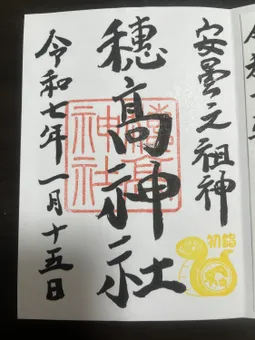 安曇元祖神
穂高神社
穂高
神社
令和七年一月十五日
初詣